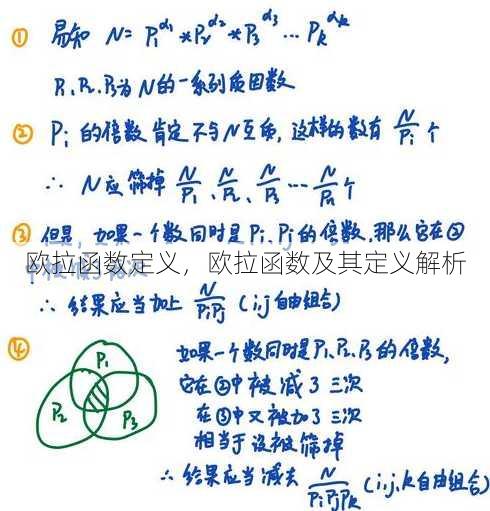 ① 易知 N = P₁^α₁ * P₂^α₂ * P₃^α₃ … Pₖ^αₖ
P₁、P₂、P₃为 N的一系列质因数
② Pᵢ 的倍数肯定不与N互质,这样的数有 N/Pᵢ 个
∴ N应筛掉 N/P₁、N/P₂、N/P₃ … N/Pₖ 个
③ 但是,如果一个数同时是Pᵢ、Pⱼ的倍数,那么它在②
欧拉函数定义，欧拉函数及其定义解析
∴ 结果应当加上 N/PᵢPⱼ (i,j自由组合)
④ 如果一个数同时是P₁、P₂、P₃的倍数,
P₁
它在②中被减了三次
P₂ P₃
在③中又被加了三次
相当于没被筛掉
∴ 结果应当减去 N/PᵢPⱼPₖ (i,j,k自由组合)